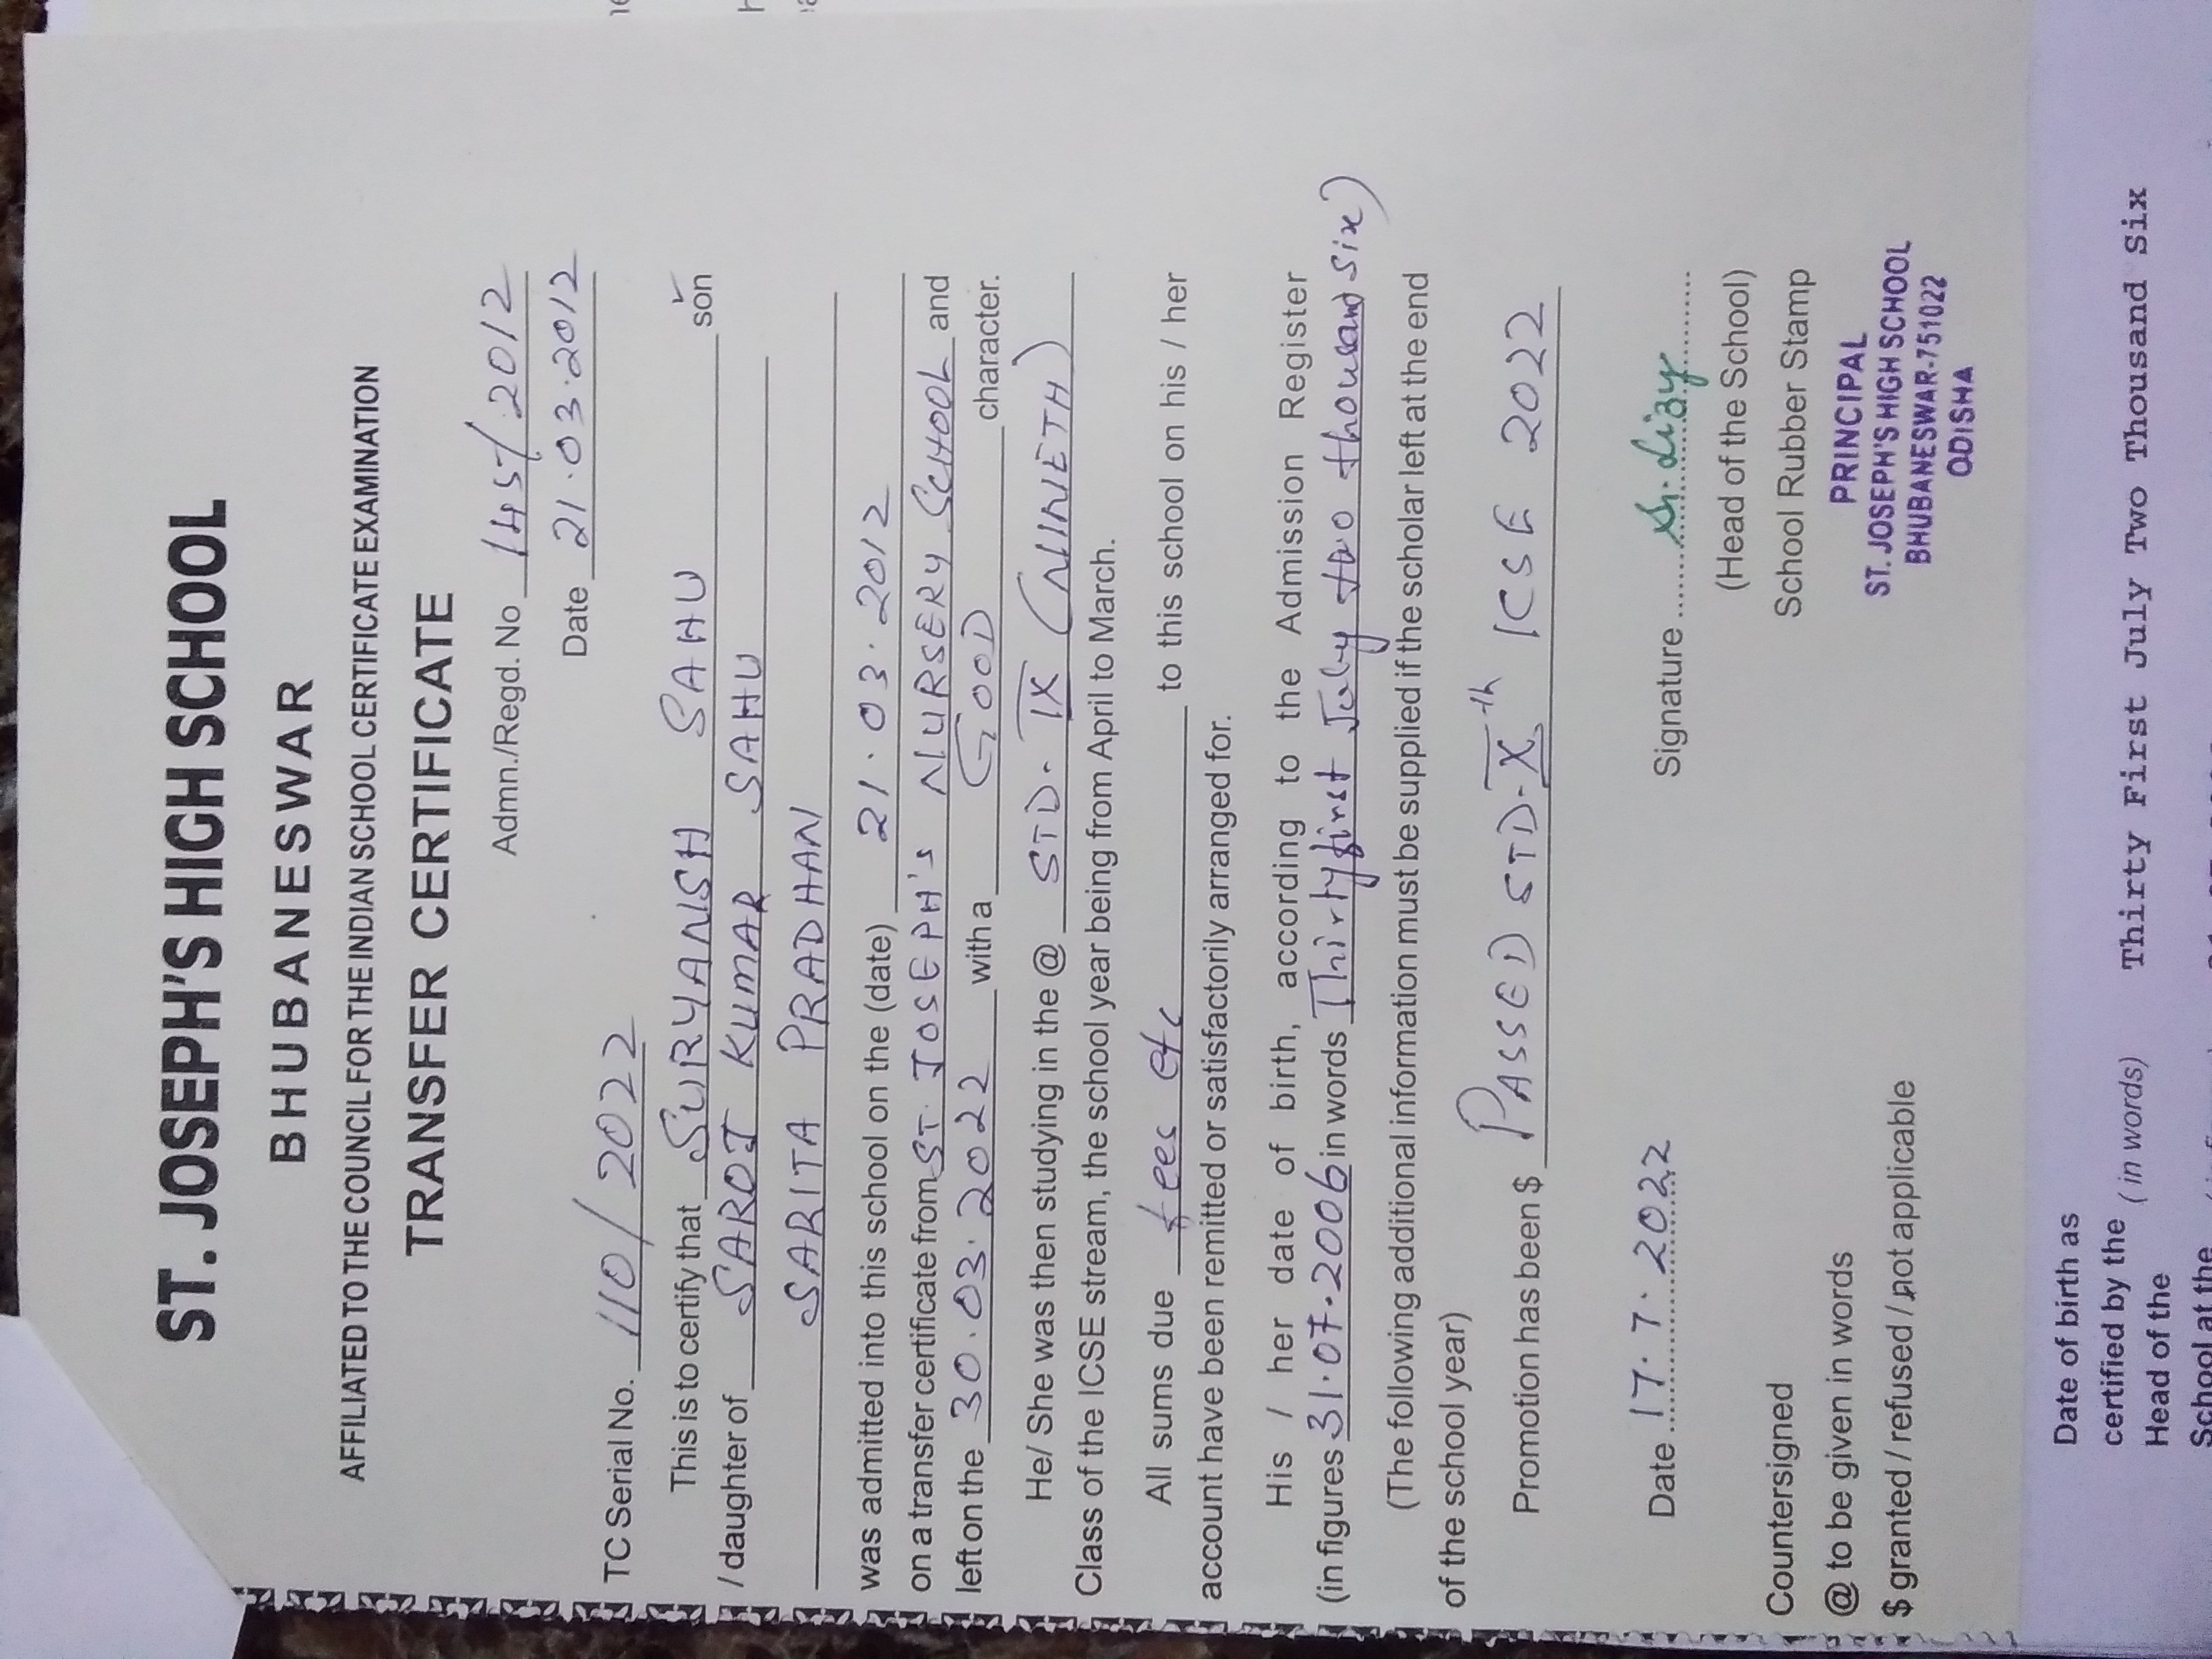 ST. JOSEPH'S HIGH SCHOOL
BHUBANESWAR
AFFILIATED TO THE COUNCIL FOR THE INDIAN SCHOOL CERTIFICATE EXAMINATION
TRANSFER CERTIFICATE
Admn./Regd. No 145/2012
Date 21.03.2012
TC Serial No. 110/2022
This is to certify that SURYANSH SAHU son
/ daughter of SAROJ KUMAR SAHU
SARITA PRADHAN
was admitted into this school on the (date) 21.03.2012
on a transfer certificate from ST. JOSEPH's NURSERY SCHOOL and
left on the 30.03.2022 with a GOOD character.
He/ She was then studying in the @ STD. IX (NINETH)
Class of the ICSE stream, the school year being from April to March.
All sums due fees etc to this school on his / her
account have been remitted or satisfactorily arranged for.
His / her date of birth, according to the Admission Register
(in figures 31.07.2006 in words Thirtyfirst July two thousand six)
(The following additional information must be supplied if the scholar left at the end
of the school year)
Promotion has been $ PASSED STD-Xth ICSE 2022
Date 17.7.2022 Signature Sr. Lizy
(Head of the School)
Countersigned School Rubber Stamp
@ to be given in words
$ granted / refused / not applicable
PRINCIPAL
ST. JOSEPH'S HIGH SCHOOL
BHUBANESWAR-751022
ODISHA
Date of birth as
certified by the (in words) Thirty First July Two Thousand Six
Head of the
School at the